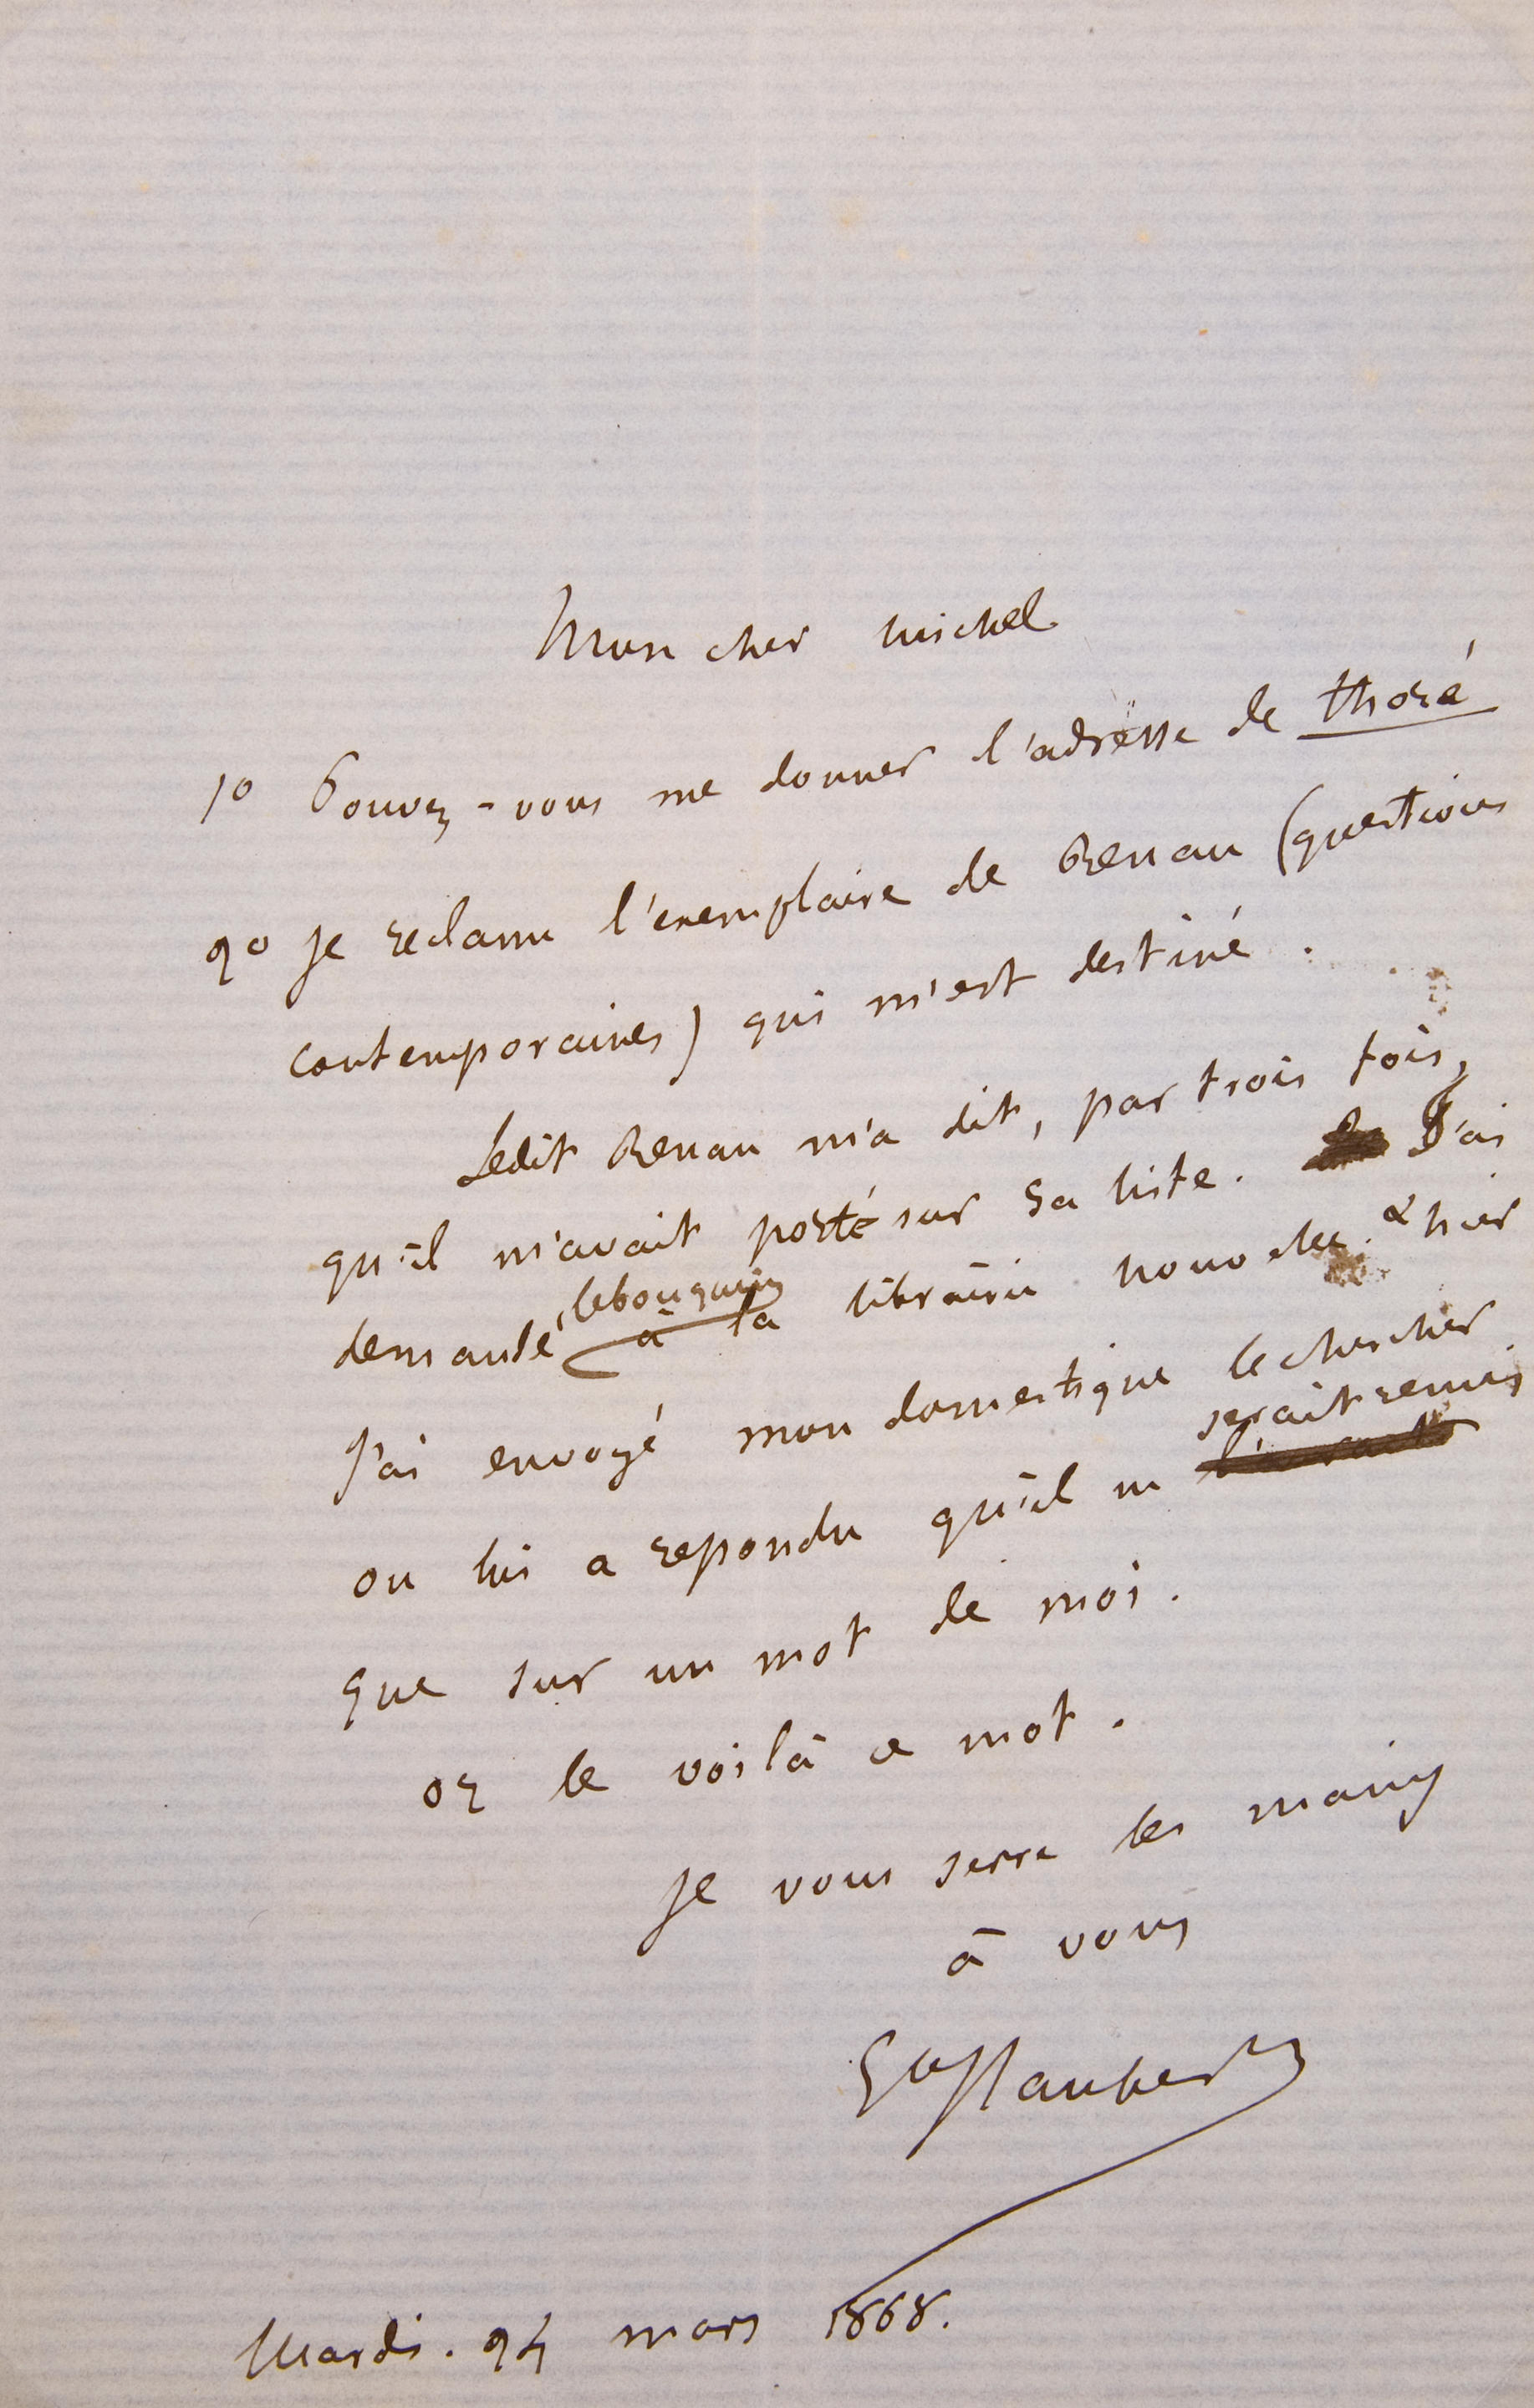 Mon cher Michel
1º Pouvez-vous me donner l'adresse de Thoré
2º Je reclame l'exemplaire de Renan (questions
contemporaines) qui m'est destiné.
Ledit Renan m'a dit, par trois fois,
qu'il m'avait porté sur sa liste. J'ai
demandé le bouquin à la librairie nouvelle. & hier
J'ai envoyé mon domestique le chercher
on lui a repondu qu'il ne serait remis
que sur un mot de moi.
or le voilà ce mot.
Je vous serre les mains
à vous
Gve Flaubert
Mardi. 24 mars 1868.